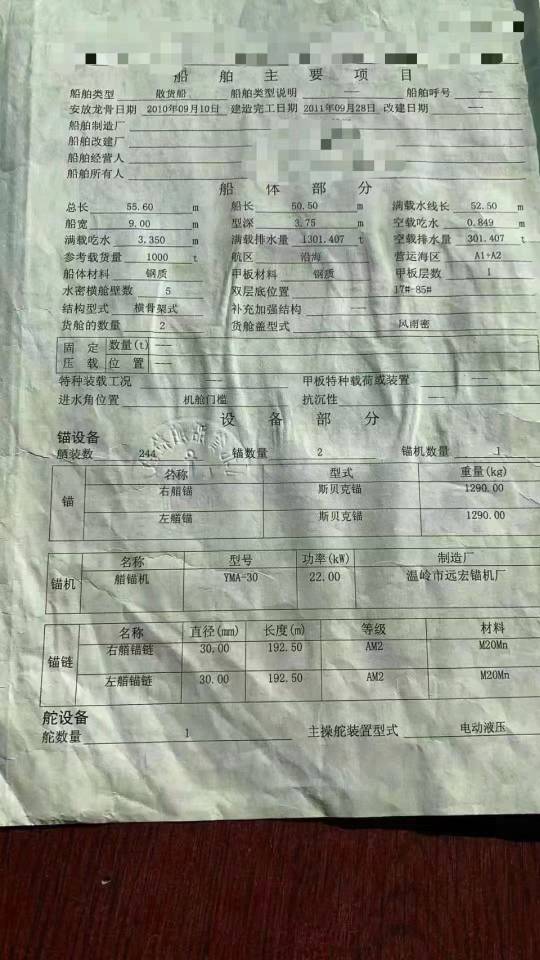 船 舶 主 要 项 目
船舶类型 散货船 船舶类型说明 — 船舶呼号 —
安放龙骨日期 2010年09月10日 建造完工日期 2011年09月28日 改建日期 —
船舶制造厂
船舶改建厂
船舶经营人
船舶所有人
船 体 部 分
总长 55.60 m 船长 50.50 m 满载水线长 52.50 m
船宽 9.00 m 型深 3.75 m 空载吃水 0.849 m
满载吃水 3.350 m 满载排水量 1301.407 t 空载排水量 301.407 t
参考载货量 1000 t 航区 沿海 营运海区 A1+A2
船体材料 钢质 甲板材料 钢质 甲板层数 1
水密横舱壁数 5 双层底位置 17#-85#
结构型式 横骨架式 补充加强结构 —
货舱的数量 2 货舱盖型式 风雨密
固 定 数量(t) —
压 载 位 置 —
特种装载工况 — 甲板特种载荷或装置 —
进水角位置 机舱门槛 抗沉性 —
设 备 部 分
锚设备
舾装数 244 锚数量 2 锚机数量 1
名称 型式 重量(kg)
锚 右艏锚 斯贝克锚 1290.00
左艏锚 斯贝克锚 1290.00
名称 型号 功率(kW) 制造厂
锚机 艏锚机 YMA-30 22.00 温岭市远宏锚机厂
名称 直径(mm) 长度(m) 等级 材料
锚链 右艏锚链 30.00 192.50 AM2 M20Mn
左艏锚链 30.00 192.50 AM2 M20Mn
舵设备
舵数量 1 主操舵装置型式 电动液压